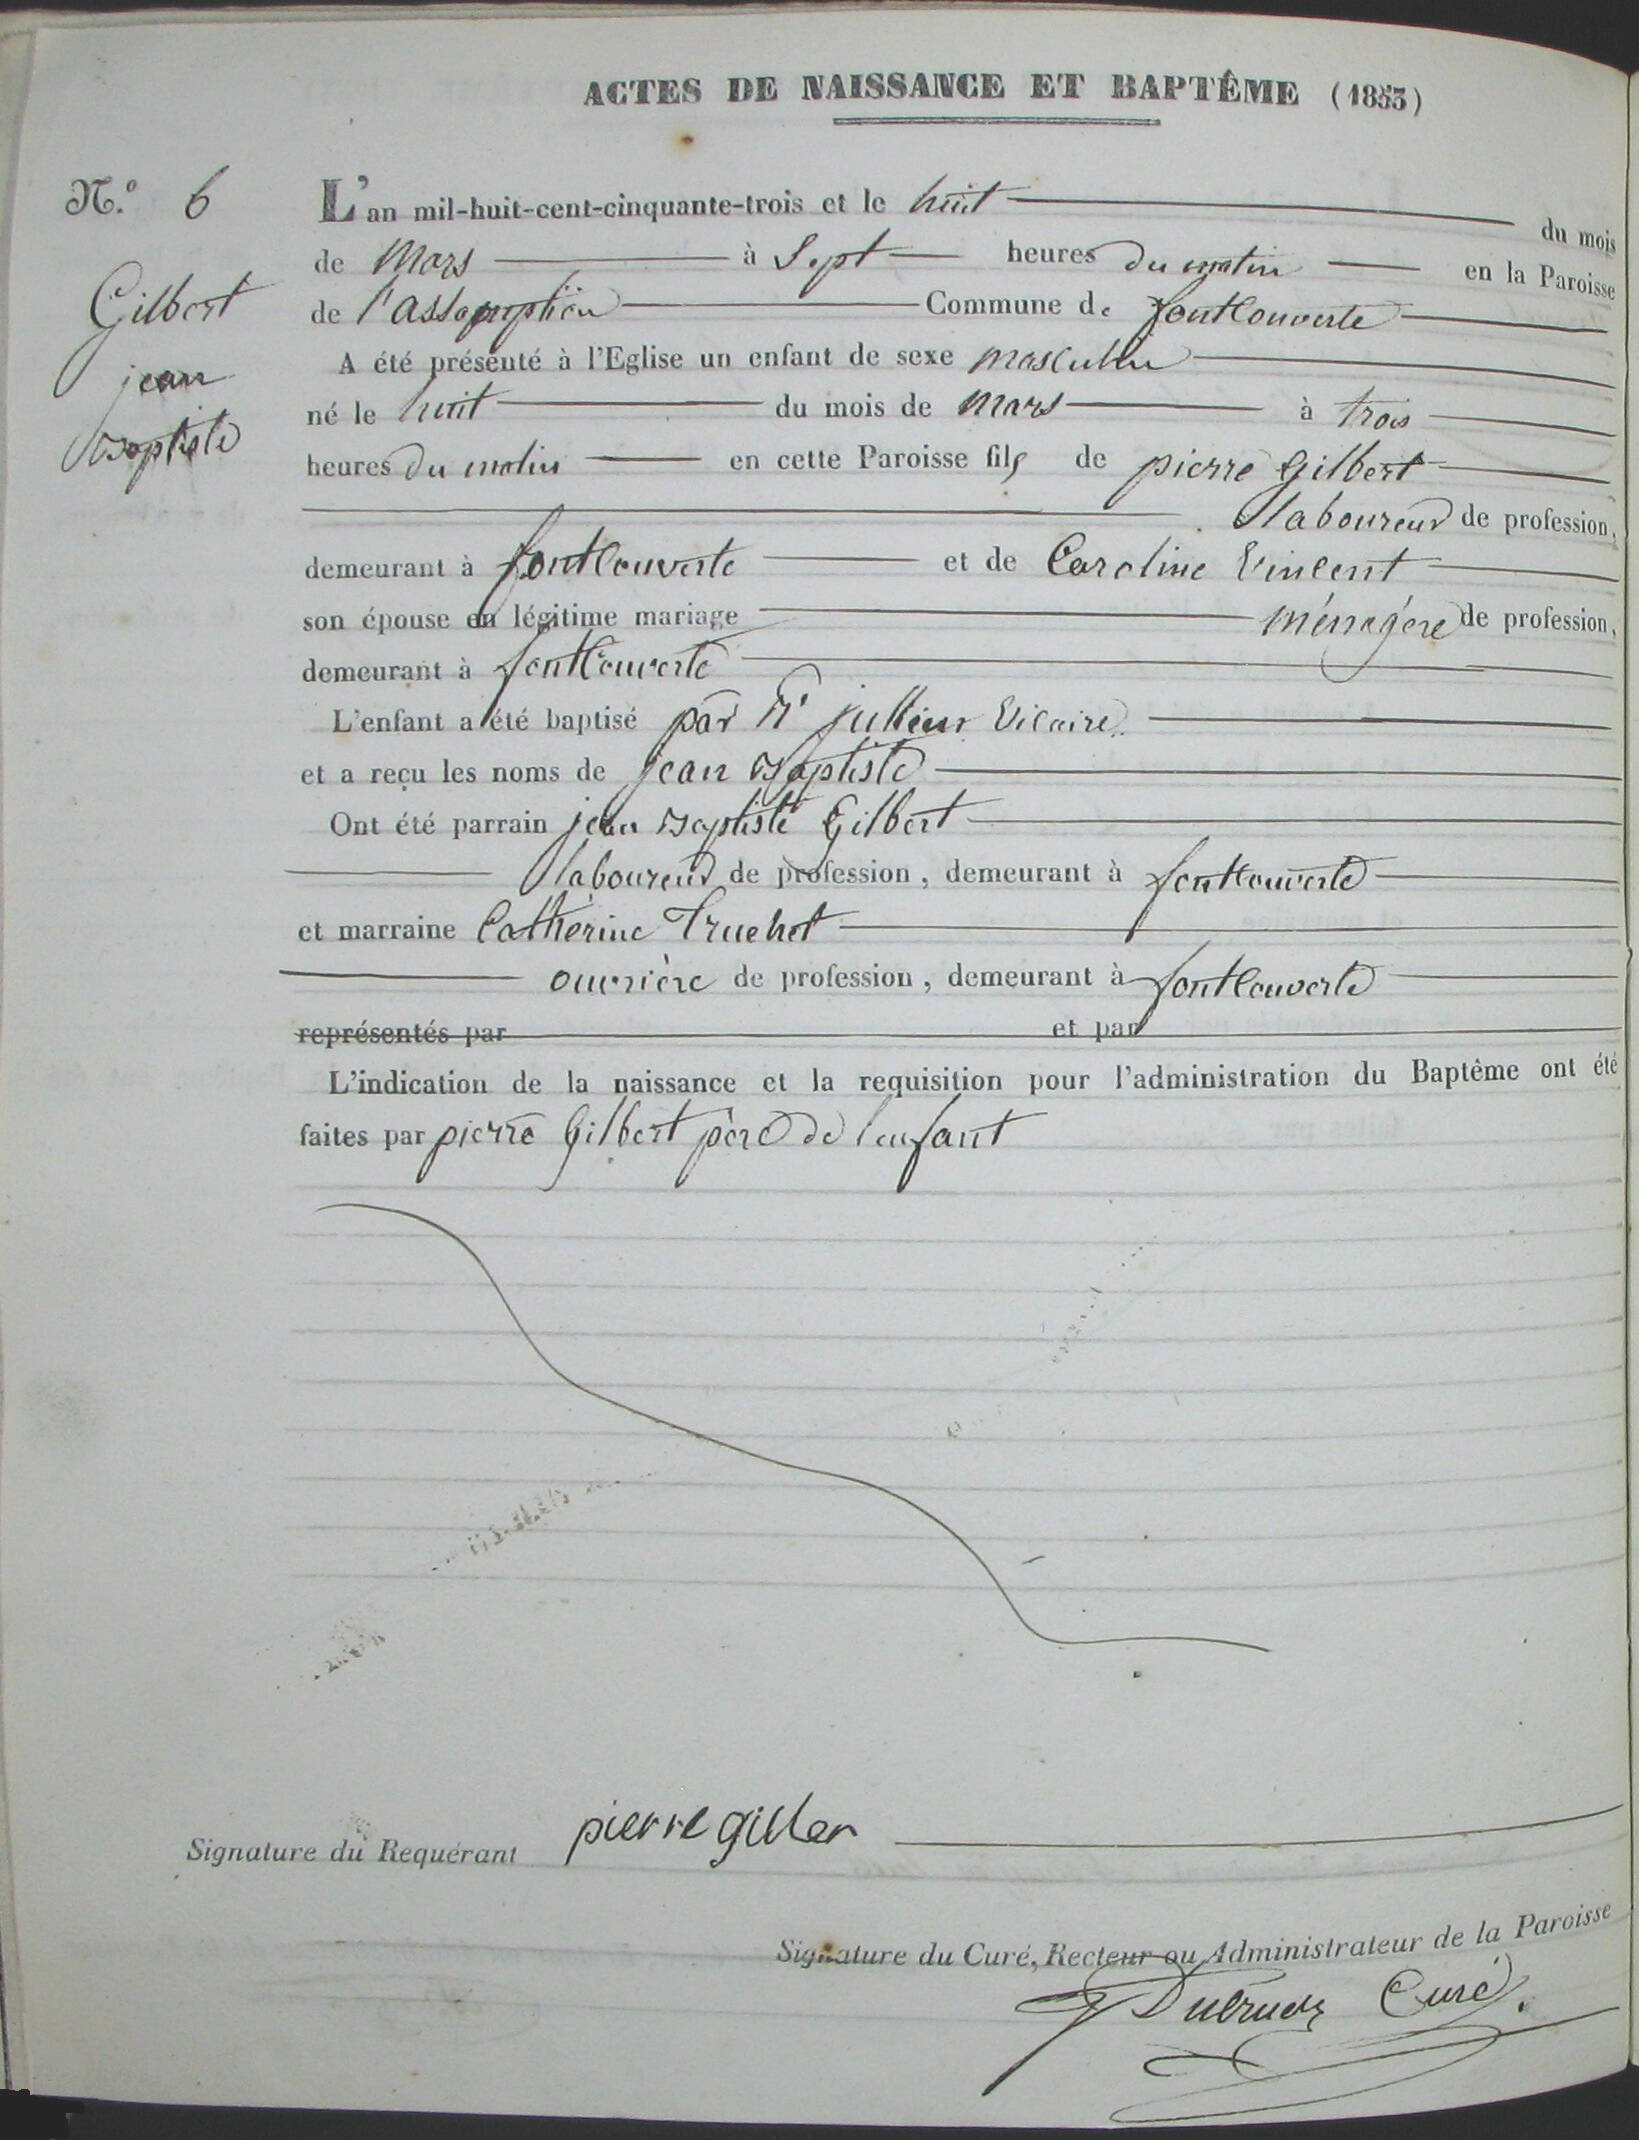 ACTES DE NAISSANCE ET BAPTÊME (1853)
N.° 6
Gilbert
jean
Baptiste
L'an mil-huit-cent-cinquante-trois et le huit du mois
de Mars à Sept heures du matin en la Paroisse
de l'assomption Commune de fontcouverte
A été présenté à l'Eglise un enfant de sexe masculin
né le huit du mois de Mars à trois
heures du matin en cette Paroisse fils de pierre Gilbert
laboureur de profession,
demeurant à fontcouverte et de Caroline Vincent
son épouse en légitime mariage ménagère de profession,
demeurant à fontcouverte
L'enfant a été baptisé par Mr jullien Vicaire
et a reçu les noms de jean Baptiste
Ont été parrain jean Baptiste Gilbert
laboureur de profession, demeurant à fontcouverte
et marraine Catherine Truchet
ouvrière de profession, demeurant à fontcouverte
représentés par et par
L'indication de la naissance et la requisition pour l'administration du Baptême ont été
faites par pierre Gilbert père de lenfant
Signature du Requérant pierre gilber
Signature du Curé, Recteur ou Administrateur de la Paroisse
Curé.